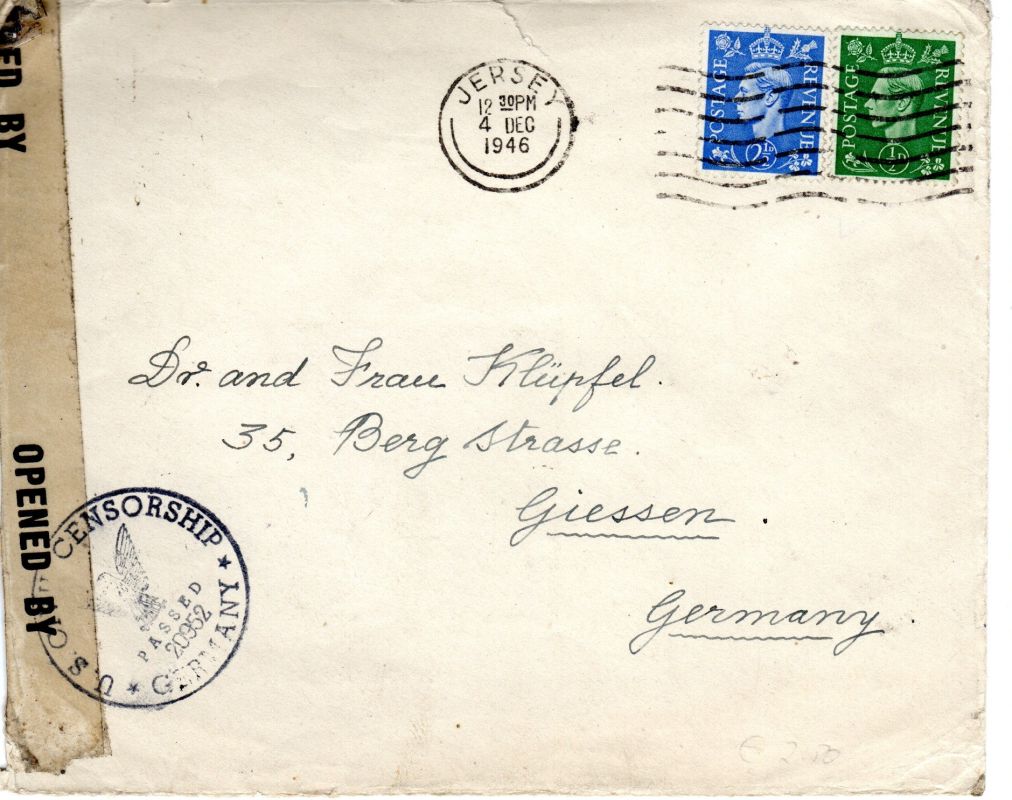 JERSEY
12 30PM
4 DEC
1946
POSTAGE REVENUE
2½D
POSTAGE REVENUE
½D
Dr. and Frau Klüpfel.
35, Berg Strasse.
Giessen.
Germany.
NED BY
OPENED BY
U.S. CIVIL CENSORSHIP ★ GERMANY ★
PASSED
20952